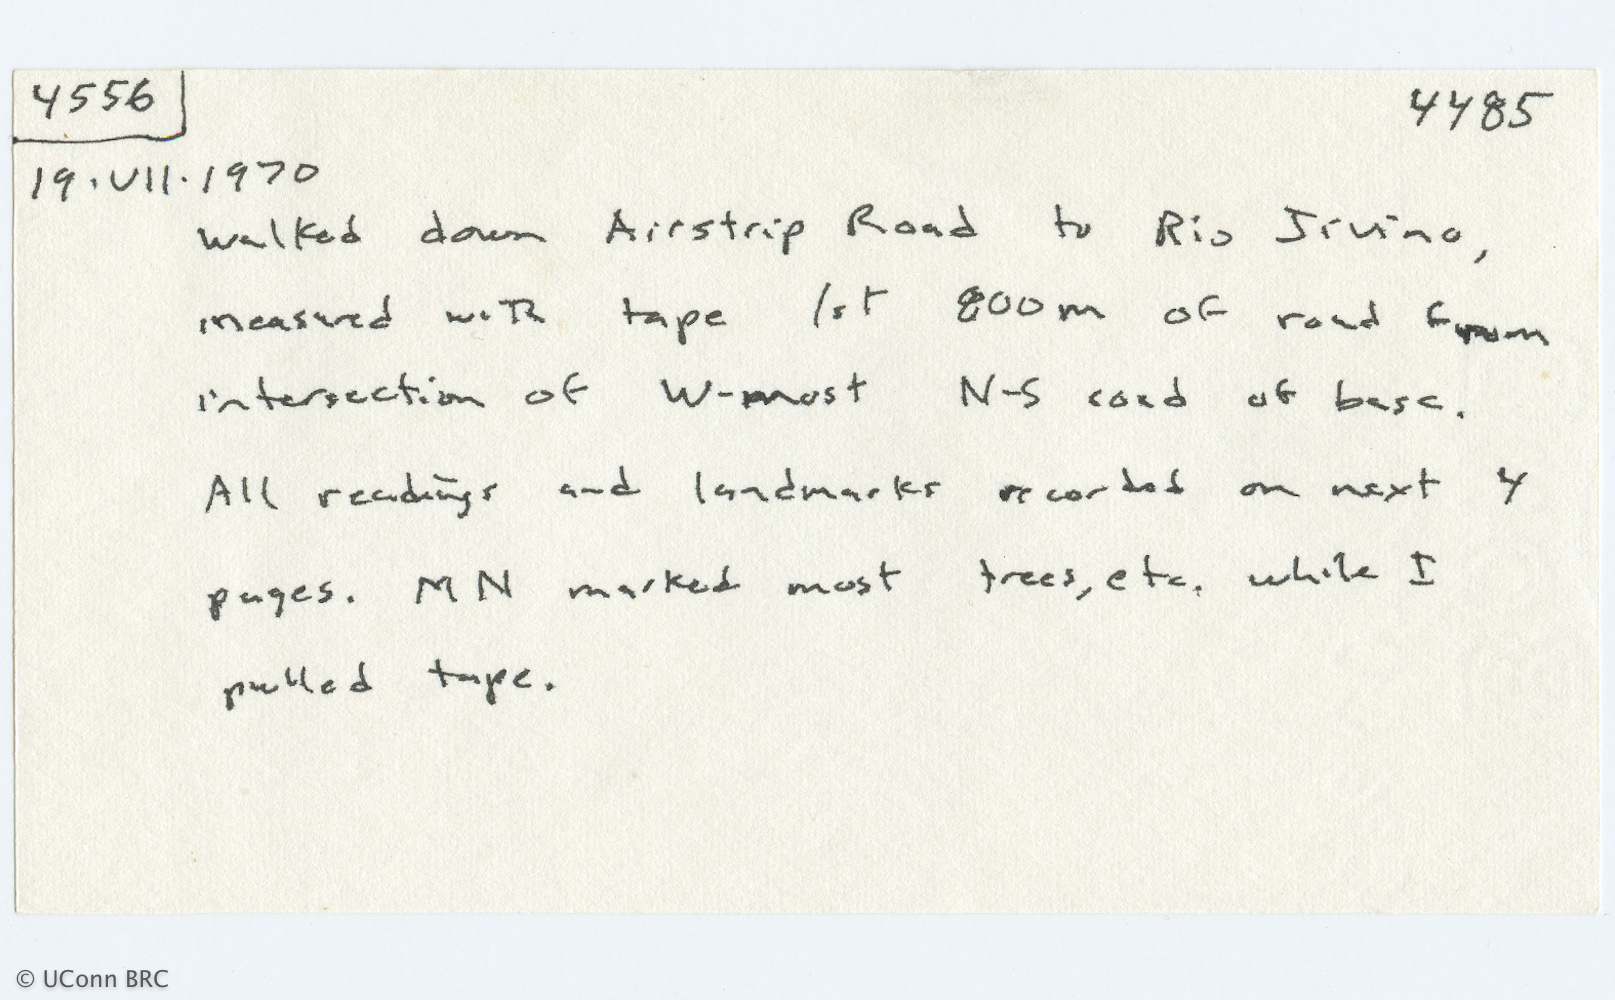 4556
4485
19.VII.1970
walked down Airstrip Road to Rio Jivino,
measured with tape 1st 800m of road from
intersection of W-most N-S road of base.
All readings and landmarks recorded on next 4
pages. MN marked most trees, etc. while I
pulled tape.
© UConn BRC